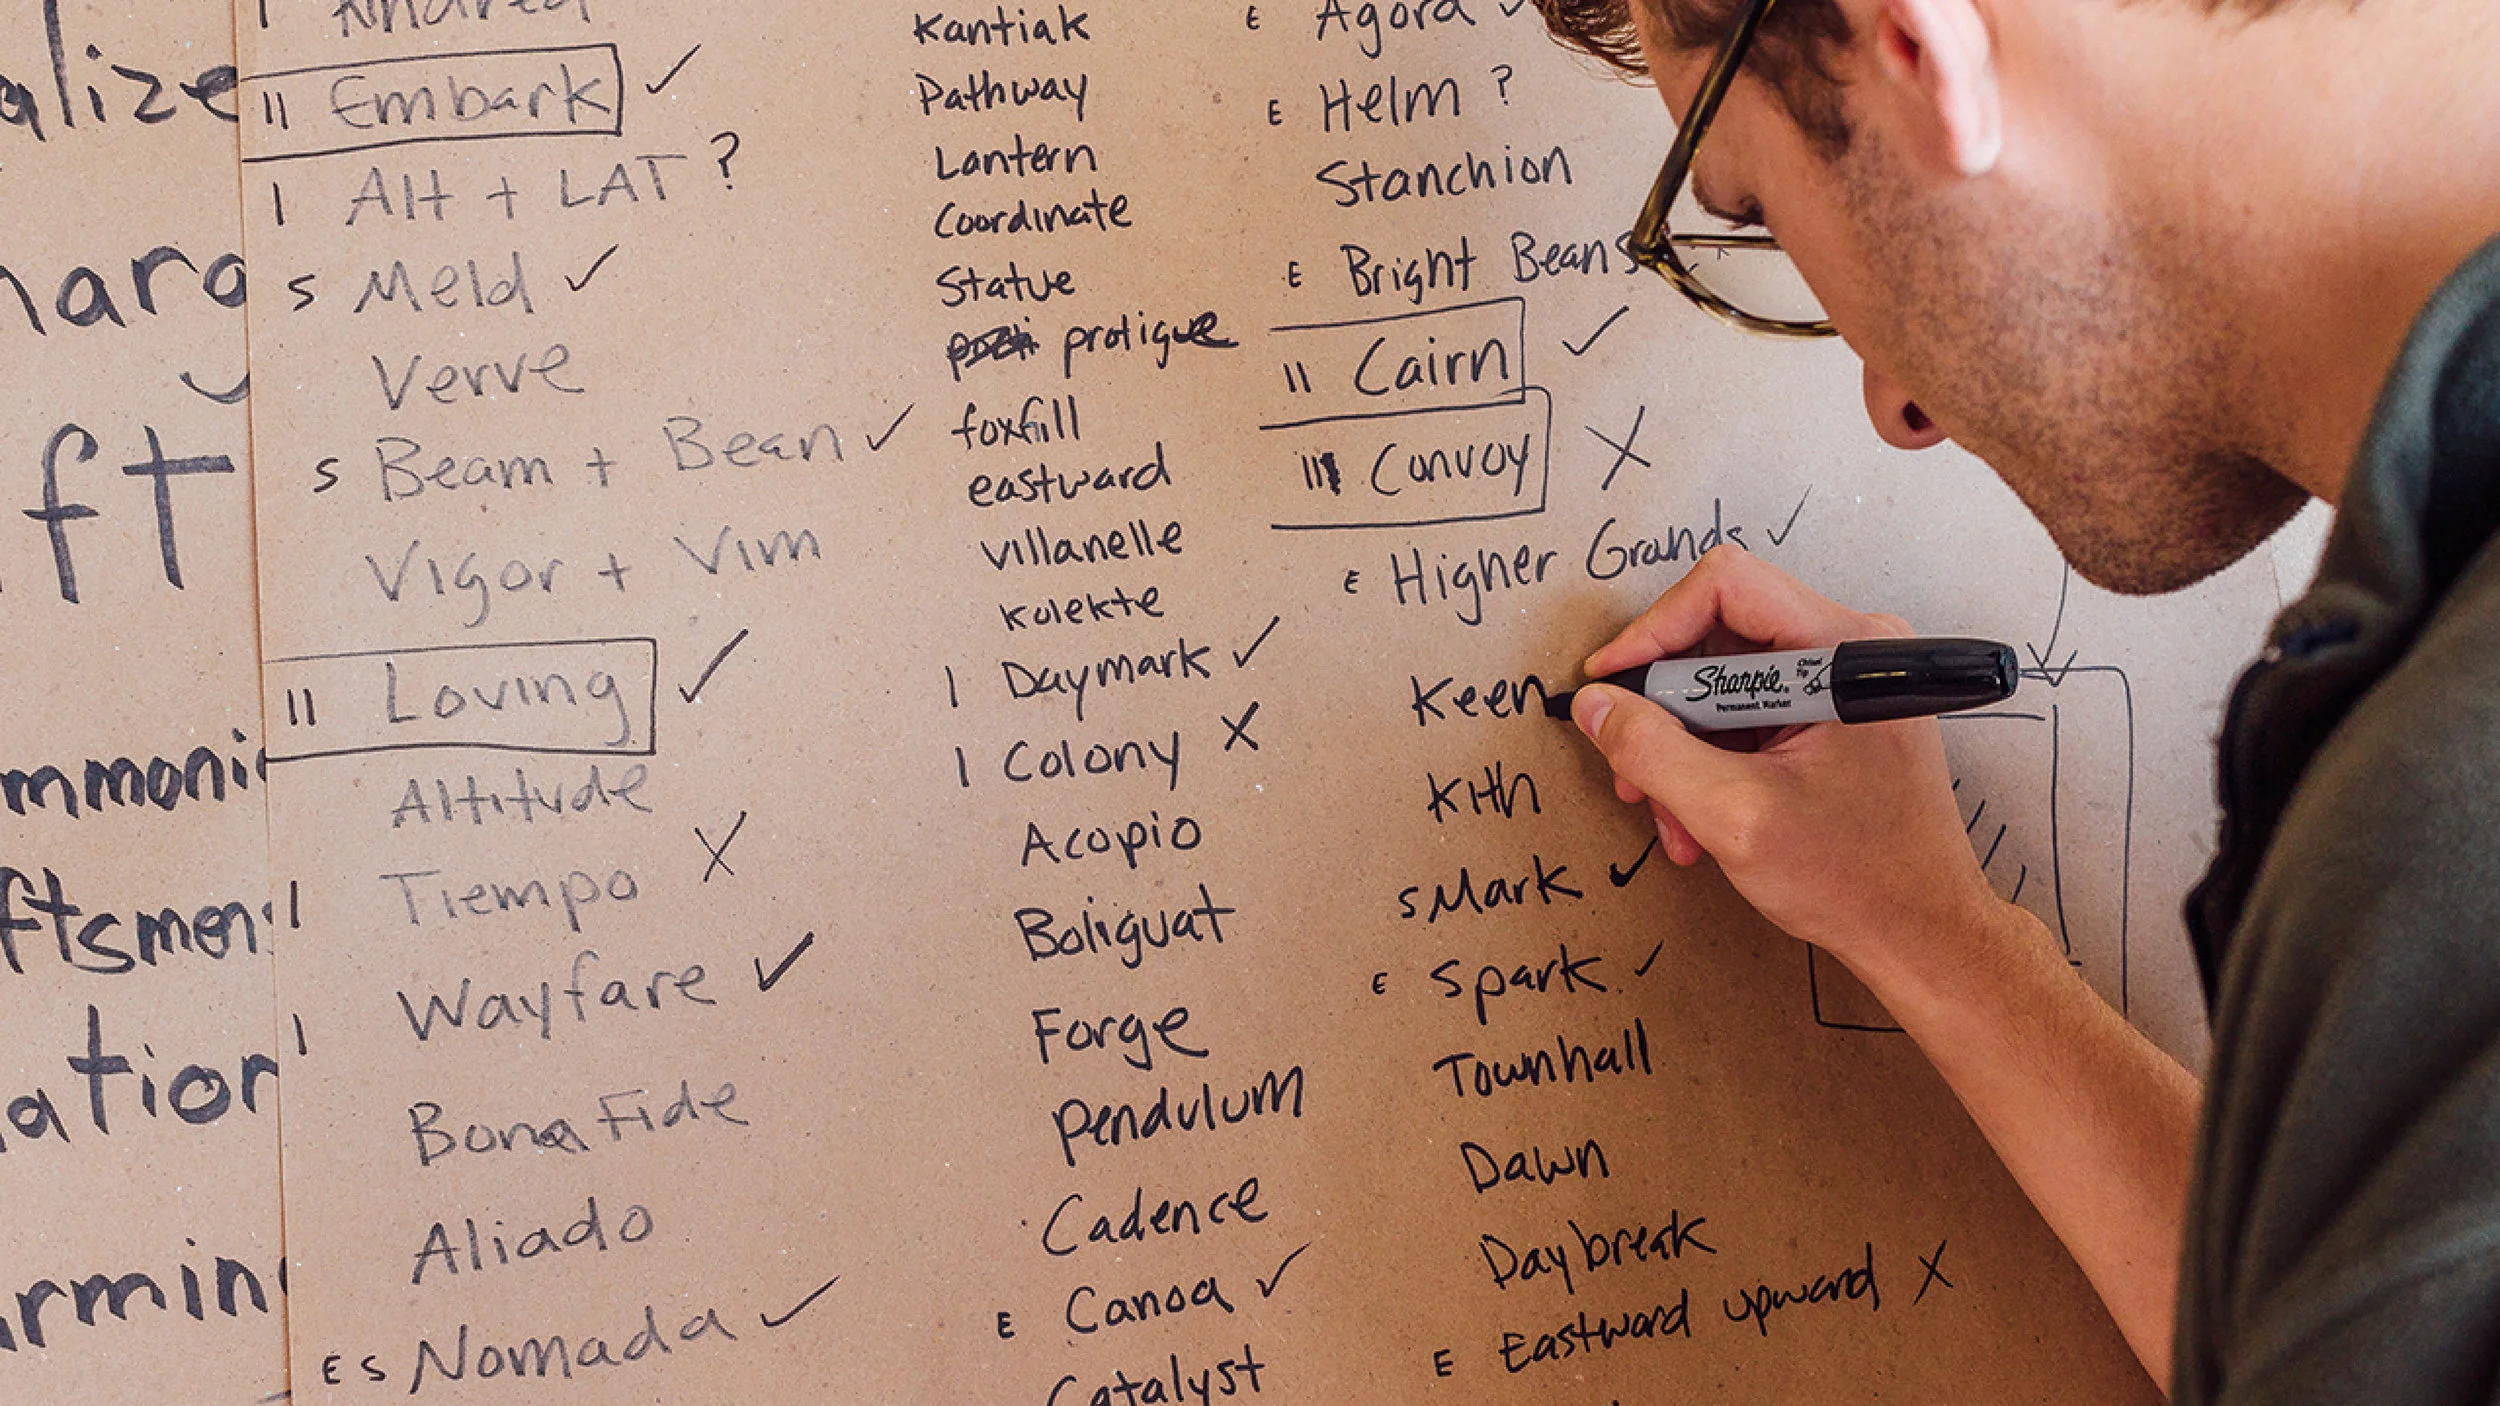 alize
harg
ft
mmonic
ftsmen
ation
rmin
I Kindred
II Embark ✓
I Alt + LAT ?
S Meld ✓
Verve
S Beam + Bean ✓
Vigor + Vim
II Loving ✓
Altitude
I Tiempo X
I Wayfare ✓
Bona Fide
Aliado
E S Nomada ✓
Kantiak
Pathway
Lantern
Coordinate
Statue
protigue
foxfill
eastward
villanelle
kolekte
I Daymark ✓
I Colony X
Acopio
Boliguat
Forge
Pendulum
Cadence
E Canoa ✓
Catalyst
E Agora ✓
E Helm ?
Stanchion
E Bright Beans
II Cairn ✓
III Convoy X
E Higher Grands ✓
Keen
Kith
S Mark ✓
E Spark ✓
Townhall
Dawn
Daybreak
E Eastward upward X
Sharpie
Permanent Marker
Chisel
Tip